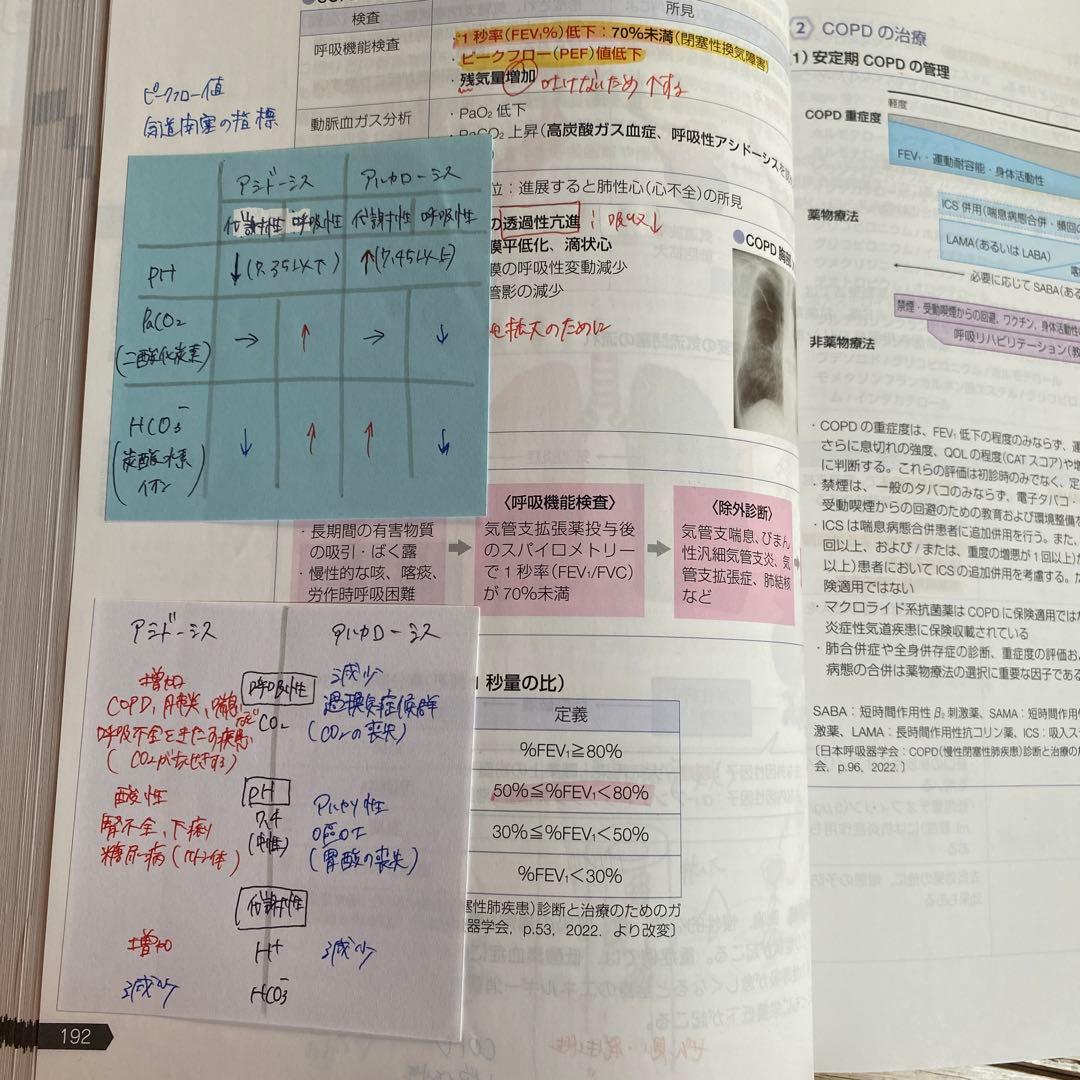 検査
所見
呼吸機能検査
・1秒率(FEV₁%)低下：70%未満(閉塞性換気障害)
・ピークフロー(PEF)値低下
・残気量増加
吐けないため
ピークフロー値
気道閉塞の指標
動脈血ガス分析
・PaO₂ 低下
PaCO₂ 上昇(高炭酸ガス血症、呼吸性アシドーシスを
位：進展すると肺性心(心不全)の所見
の透過性亢進
膜平低化、滴状心
膜の呼吸性変動減少
管影の減少
拡大のために
COPD 胸部
アシドーシス
アルカローシス
代謝性
呼吸性
代謝性
呼吸性
PH
↓(7.35以下)
↑(7.45以上)
PaCO₂
(二酸化炭素)
→
↑
→
↓
HCO₃⁻
(炭酸水素
イオン)
↓
↑
↑
↓
・長期間の有害物質
の吸引・ばく露
・慢性的な咳、喀痰、
労作時呼吸困難
〈呼吸機能検査〉
気管支拡張薬投与後
のスパイロメトリー
で1秒率(FEV₁/FVC)
が70%未満
〈除外診断〉
気管支喘息、びまん
性汎細気管支炎、気
管支拡張症、肺結核
など
アシドーシス
アルカローシス
呼吸性
増加
減少
COPD、肺炎、喘息など
CO₂
過換気症候群
呼吸不全をきたす疾患
(CO₂の喪失)
PH
酸性
アルカリ性
7.4
(中性)
腎不全、下痢
嘔吐
糖尿病(ケトン体)
(胃酸の喪失)
代謝性
増加
H⁺
減少
減少
HCO₃⁻
1秒量の比)
定義
%FEV₁≧80%
50%≦%FEV₁<80%
30%≦%FEV₁<50%
%FEV₁<30%
塞性肺疾患)診断と治療のためのガ
器学会、p.53、2022. より改変〕
192
② COPD の治療
1) 安定期 COPD の管理
軽度
COPD 重症度
FEV₁・運動耐容能・身体活動性
薬物療法
ICS 併用(喘息病態合併・頻回の
LAMA(あるいは LABA)
必要に応じて SABA(ある
禁煙・受動喫煙からの回避、ワクチン、身体活動性
非薬物療法
呼吸リハビリテーション(教
・COPD の重症度は、FEV₁ 低下の程度のみならず、運
さらに息切れの強度、QOL の程度(CAT スコア)や増
に判断する。これらの評価は初診時のみでなく、定
・禁煙は、一般のタバコのみならず、電子タバコ・
受動喫煙からの回避のための教育および環境整備
・ICS は喘息病態合併患者に追加併用を行う。また、
回以上、および/または、重度の増悪が1回以上)
以上)患者において ICS の追加併用を考慮する。た
険適用ではない
・マクロライド系抗菌薬は COPD に保険適用では
炎症性気道疾患に保険収載されている
・肺合併症や全身併存症の診断、重症度の評価お
病態の合併は薬物療法の選択に重要な因子である
SABA：短時間作用性 β₂ 刺激薬、SAMA：短時間作用
激薬、LAMA：長時間作用性抗コリン薬、ICS：吸入ス
〔日本呼吸器学会：COPD(慢性閉塞性肺疾患)診断と治療の
会、p.96、2022.〕